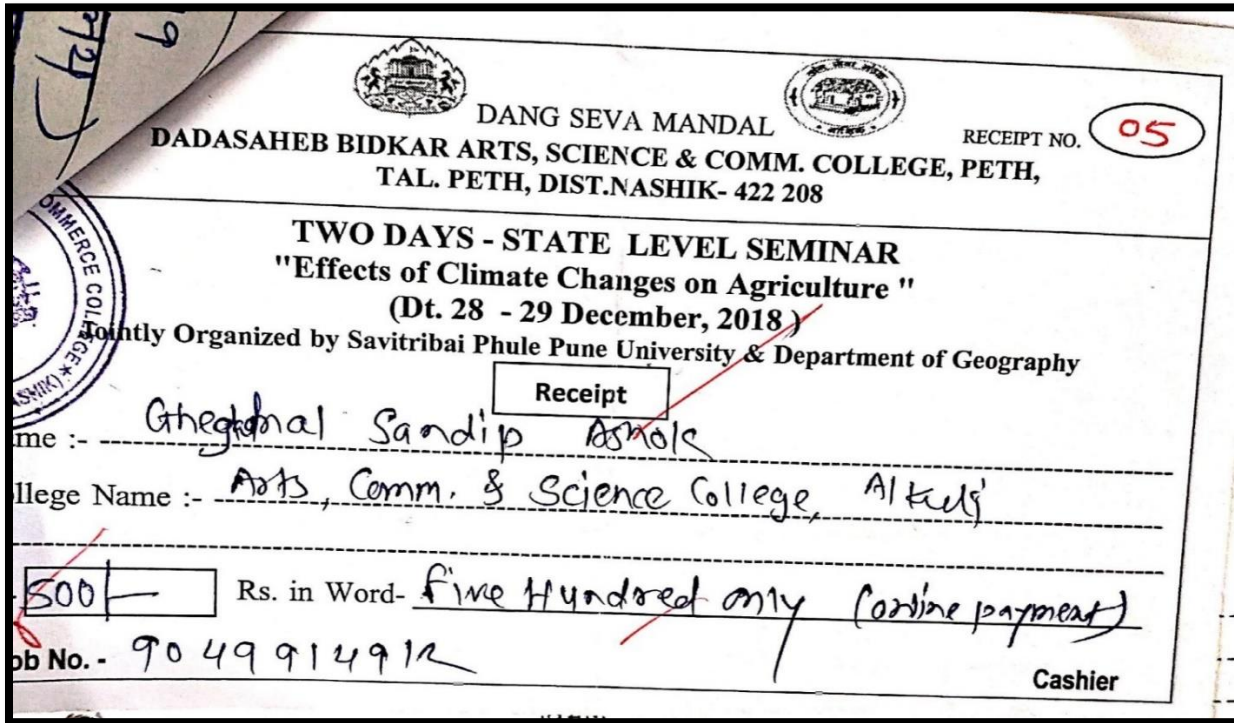 DANG SEVA MANDAL
RECEIPT NO. 05
DADASAHEB BIDKAR ARTS, SCIENCE & COMM. COLLEGE, PETH,
TAL. PETH, DIST.NASHIK- 422 208
OMMERCE COLLEGE
TWO DAYS - STATE LEVEL SEMINAR
"Effects of Climate Changes on Agriculture "
(Dt. 28 - 29 December, 2018 )
Jointly Organized by Savitribai Phule Pune University & Department of Geography
Receipt
me :- Sandip Ashok
llege Name :- Arts, Comm. & Science College,
500/- Rs. in Word- Five Hundred only (online payment)
ob No. - 9049914912
Cashier